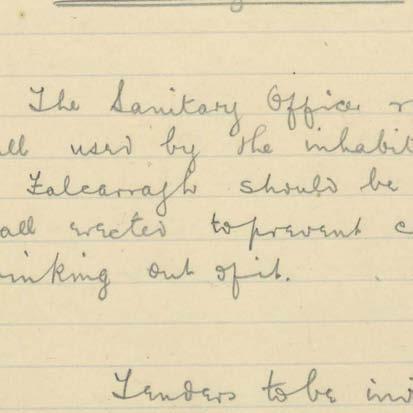 The Sanitary Officer r
ll used by the inhabit
Falcarragh should be
all erected to prevent c
inking out of it.
Tenders to be inv